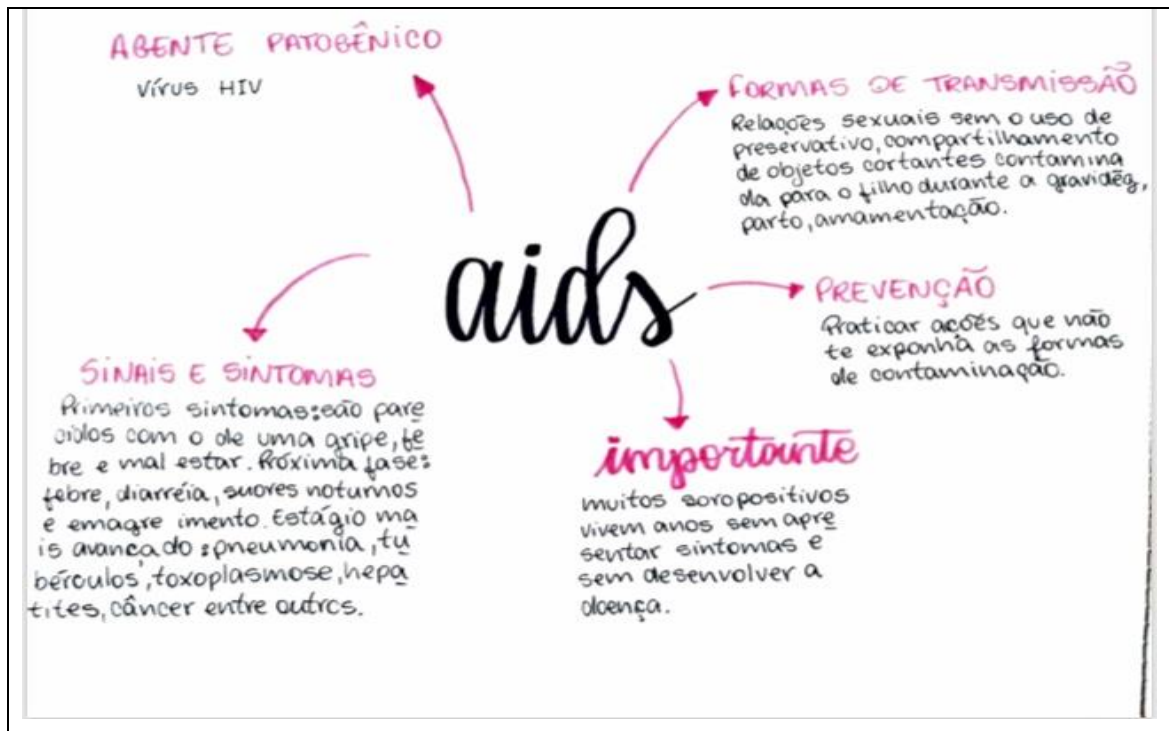 AGENTE PATOGÊNICO
Vírus HIV
FORMAS DE TRANSMISSÃO
Relações sexuais sem o uso de
preservativo, compartilhamento
de objetos cortantes contamina
da para o filho durante a gravidez,
parto, amamentação.
aids
PREVENÇÃO
Praticar ações que não
te exponha as formas
de contaminação.
SINAIS E SINTOMAS
Primeiros sintomas: são pare
cidos com o de uma gripe, fe
bre e mal estar. Próxima fase:
febre, diarréia, suores noturnos
e emagre imento. Estágio ma
is avançado: pneumonia, tu
bérculos, toxoplasmose, hepa
tites, câncer entre outros.
importante
muitos soropositivos
vivem anos sem apre
sentar sintomas e
sem desenvolver a
doença.